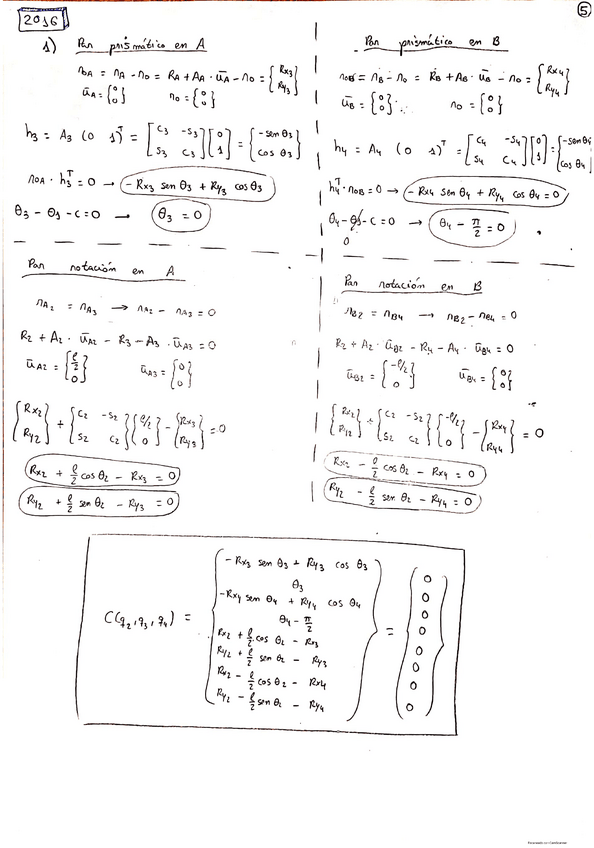 2016
5
1) Par prismático en A
r_OA = r_A - r_O = R_A + A_A · ū_A - r_O = {Rx3 Ry3}
ū_A = {0 0} r_O = {0 0}
h3 = A3 (0 1)^T = [c3 -s3 s3 c3] [0 1] = {-sen θ3 cos θ3}
r_OA · h3^T = 0 → -Rx3 sen θ3 + Ry3 cos θ3
θ3 - θ1 - c = 0 → θ3 = 0
Par prismático en B
r_OB = r_B - r_O = R_B + A_B · ū_B - r_O = {Rx4 Ry4}
ū_B = {0 0} r_O = {0 0}
h4 = A4 (0 1)^T = [c4 -s4 s4 c4] [0 1] = {-sen θ4 cos θ4}
h4^T · r_OB = 0 → -Rx4 sen θ4 + Ry4 cos θ4 = 0
θ4 - θ1 - c = 0 → θ4 - π/2 = 0
0
Par rotación en A
r_A2 = r_A3 → r_A2 - r_A3 = 0
R2 + A2 · ū_A2 - R3 - A3 · ū_A3 = 0
ū_A2 = {ℓ/2 0} ū_A3 = {0 0}
{Rx2 Ry2} + {c2 -s2 s2 c2} {ℓ/2 0} - {Rx3 Ry3} = 0
Rx2 + ℓ/2 cos θ2 - Rx3 = 0
Ry2 + ℓ/2 sen θ2 - Ry3 = 0
Par rotación en B
r_B2 = r_B4 → r_B2 - r_B4 = 0
R2 + A2 · ū_B2 - R4 - A4 · ū_B4 = 0
ū_B2 = {-ℓ/2 0} ū_B4 = {0 0}
{Rx2 Ry2} + {c2 -s2 s2 c2} {-ℓ/2 0} - {Rx4 Ry4} = 0
Rx2 - ℓ/2 cos θ2 - Rx4 = 0
Ry2 - ℓ/2 sen θ2 - Ry4 = 0
-Rx3 sen θ3 + Ry3 cos θ3 0
θ3 0
-Rx4 sen θ4 + Ry4 cos θ4 0
C(q2, q3, q4) = θ4 - π/2 = 0
Rx2 + ℓ/2 cos θ2 - Rx3 0
Ry2 + ℓ/2 sen θ2 - Ry3 0
Rx2 - ℓ/2 cos θ2 - Rx4 0
Ry2 - ℓ/2 sen θ2 - Ry4 0